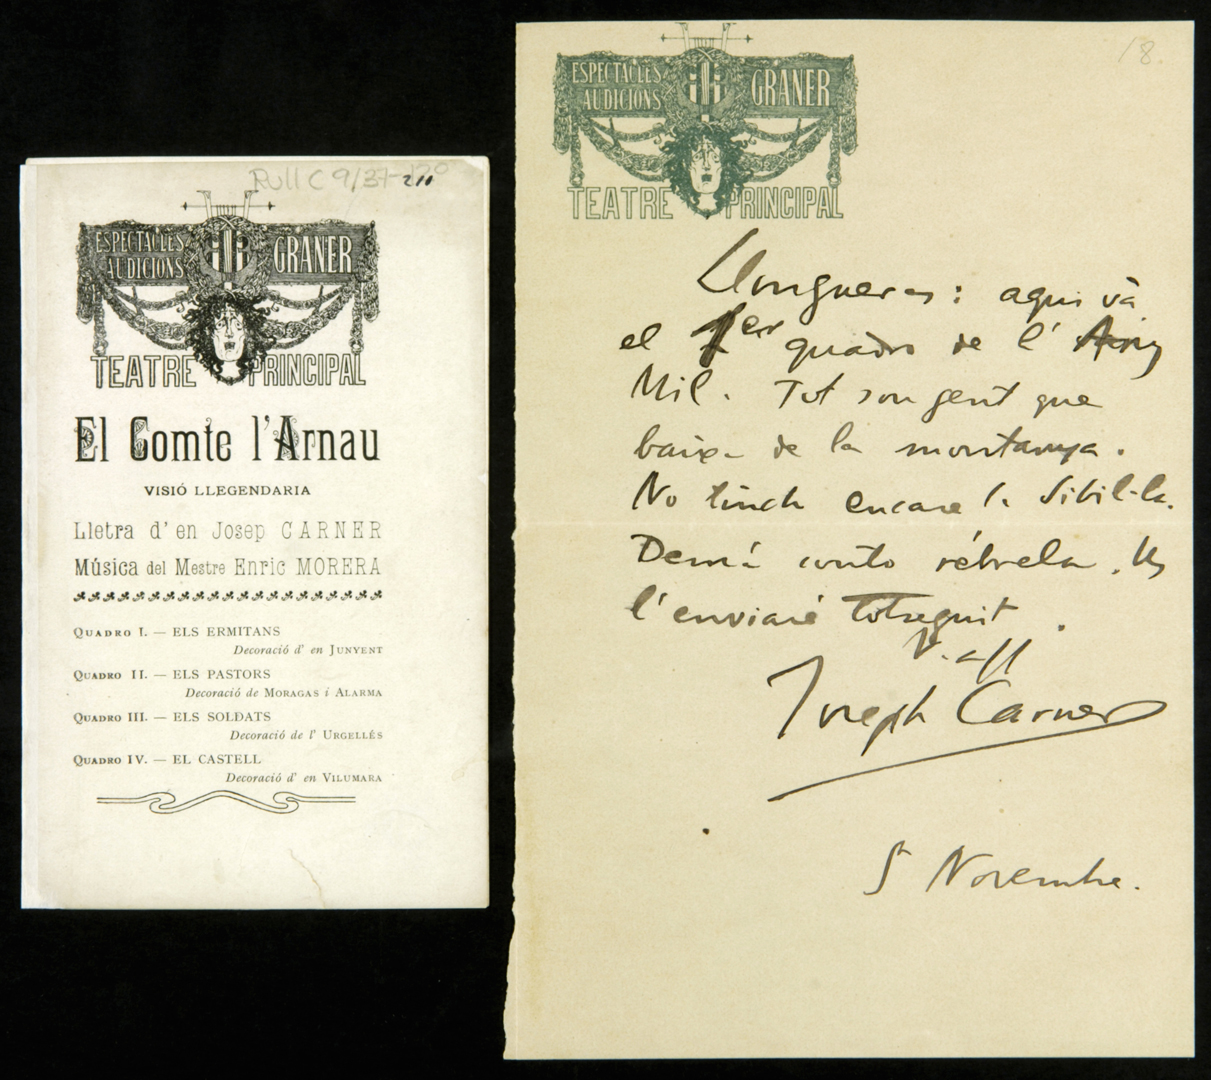 Rull C 9/37-
ESPECTACLES
AUDICIONS
GRANER
TEATRE PRINCIPAL
El Comte l'Arnau
VISIÓ LLEGENDARIA
Lletra d' en Josep CARNER
Música del Mestre Enric MORERA
QUADRO I. — ELS ERMITANS
Decoració d' en JUNYENT
QUADRO II. — ELS PASTORS
Decoració de MORAGAS i ALARMA
QUADRO III. — ELS SOLDATS
Decoració de l' URGELLÉS
QUADRO IV. — EL CASTELL
Decoració d' en VILUMARA
18.
ESPECTACLES
AUDICIONS
GRANER
TEATRE PRINCIPAL
Llongueras: aquí và
el 1er quadro de l' Any
Mil. Tot son gent que
baixa de la montanya.
No tinch encare la Sibil-la.
Demá conto rébrela. Us
l'enviaré totseguit.
V. aff
Joseph Carner
5 Novembre.